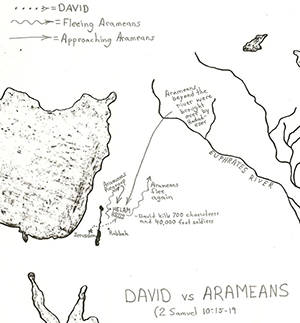 = DAVID
= Fleeing Arameans
= Approaching Arameans
Arameans
beyond the
river were
brought
EUPHRATES RIVER
Arameans
Arameans
flee
again
HELAM
David kills 700 charioteers
and 40,000 foot soldiers
Jerusalem
Rabbah
DAVID vs ARAMEANS
(2 Samuel 10:15-19